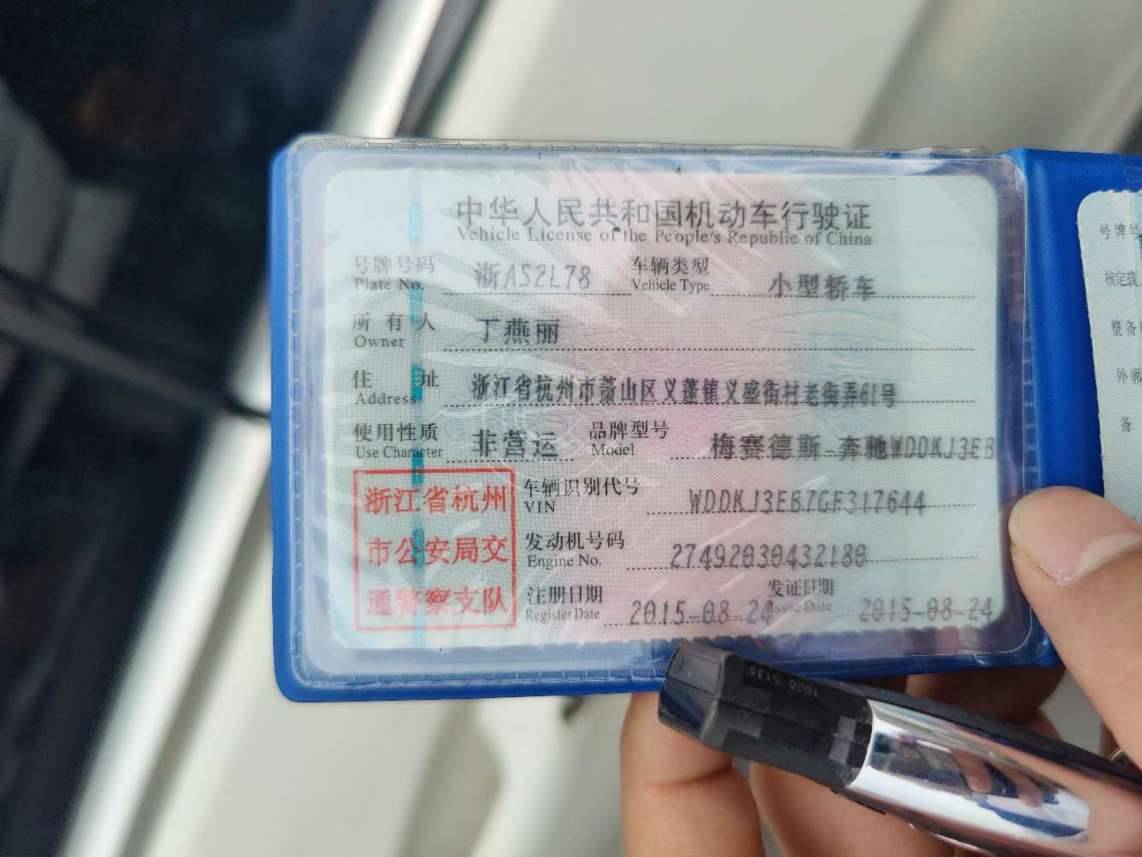 中华人民共和国机动车行驶证
Vehicle License of the People's Republic of China
号牌号码 浙AS2L78 车辆类型 小型轿车
Plate No. Vehicle Type
所有人 丁燕丽
Owner
住址 浙江省杭州市萧山区义蓬镇义盛街村老街弄61号
Address
使用性质 非营运 品牌型号 梅赛德斯-奔驰WDDKJ3EB
Use Character Model
浙江省杭州
市公安局交
通警察支队
车辆识别代号 WDDKJ3EB7GF317644
VIN
发动机号码 27492030432180
Engine No.
注册日期 2015-08-24 发证日期 2015-08-24
Register Date Issue Date
号牌号
核定载
整备
外廓
备